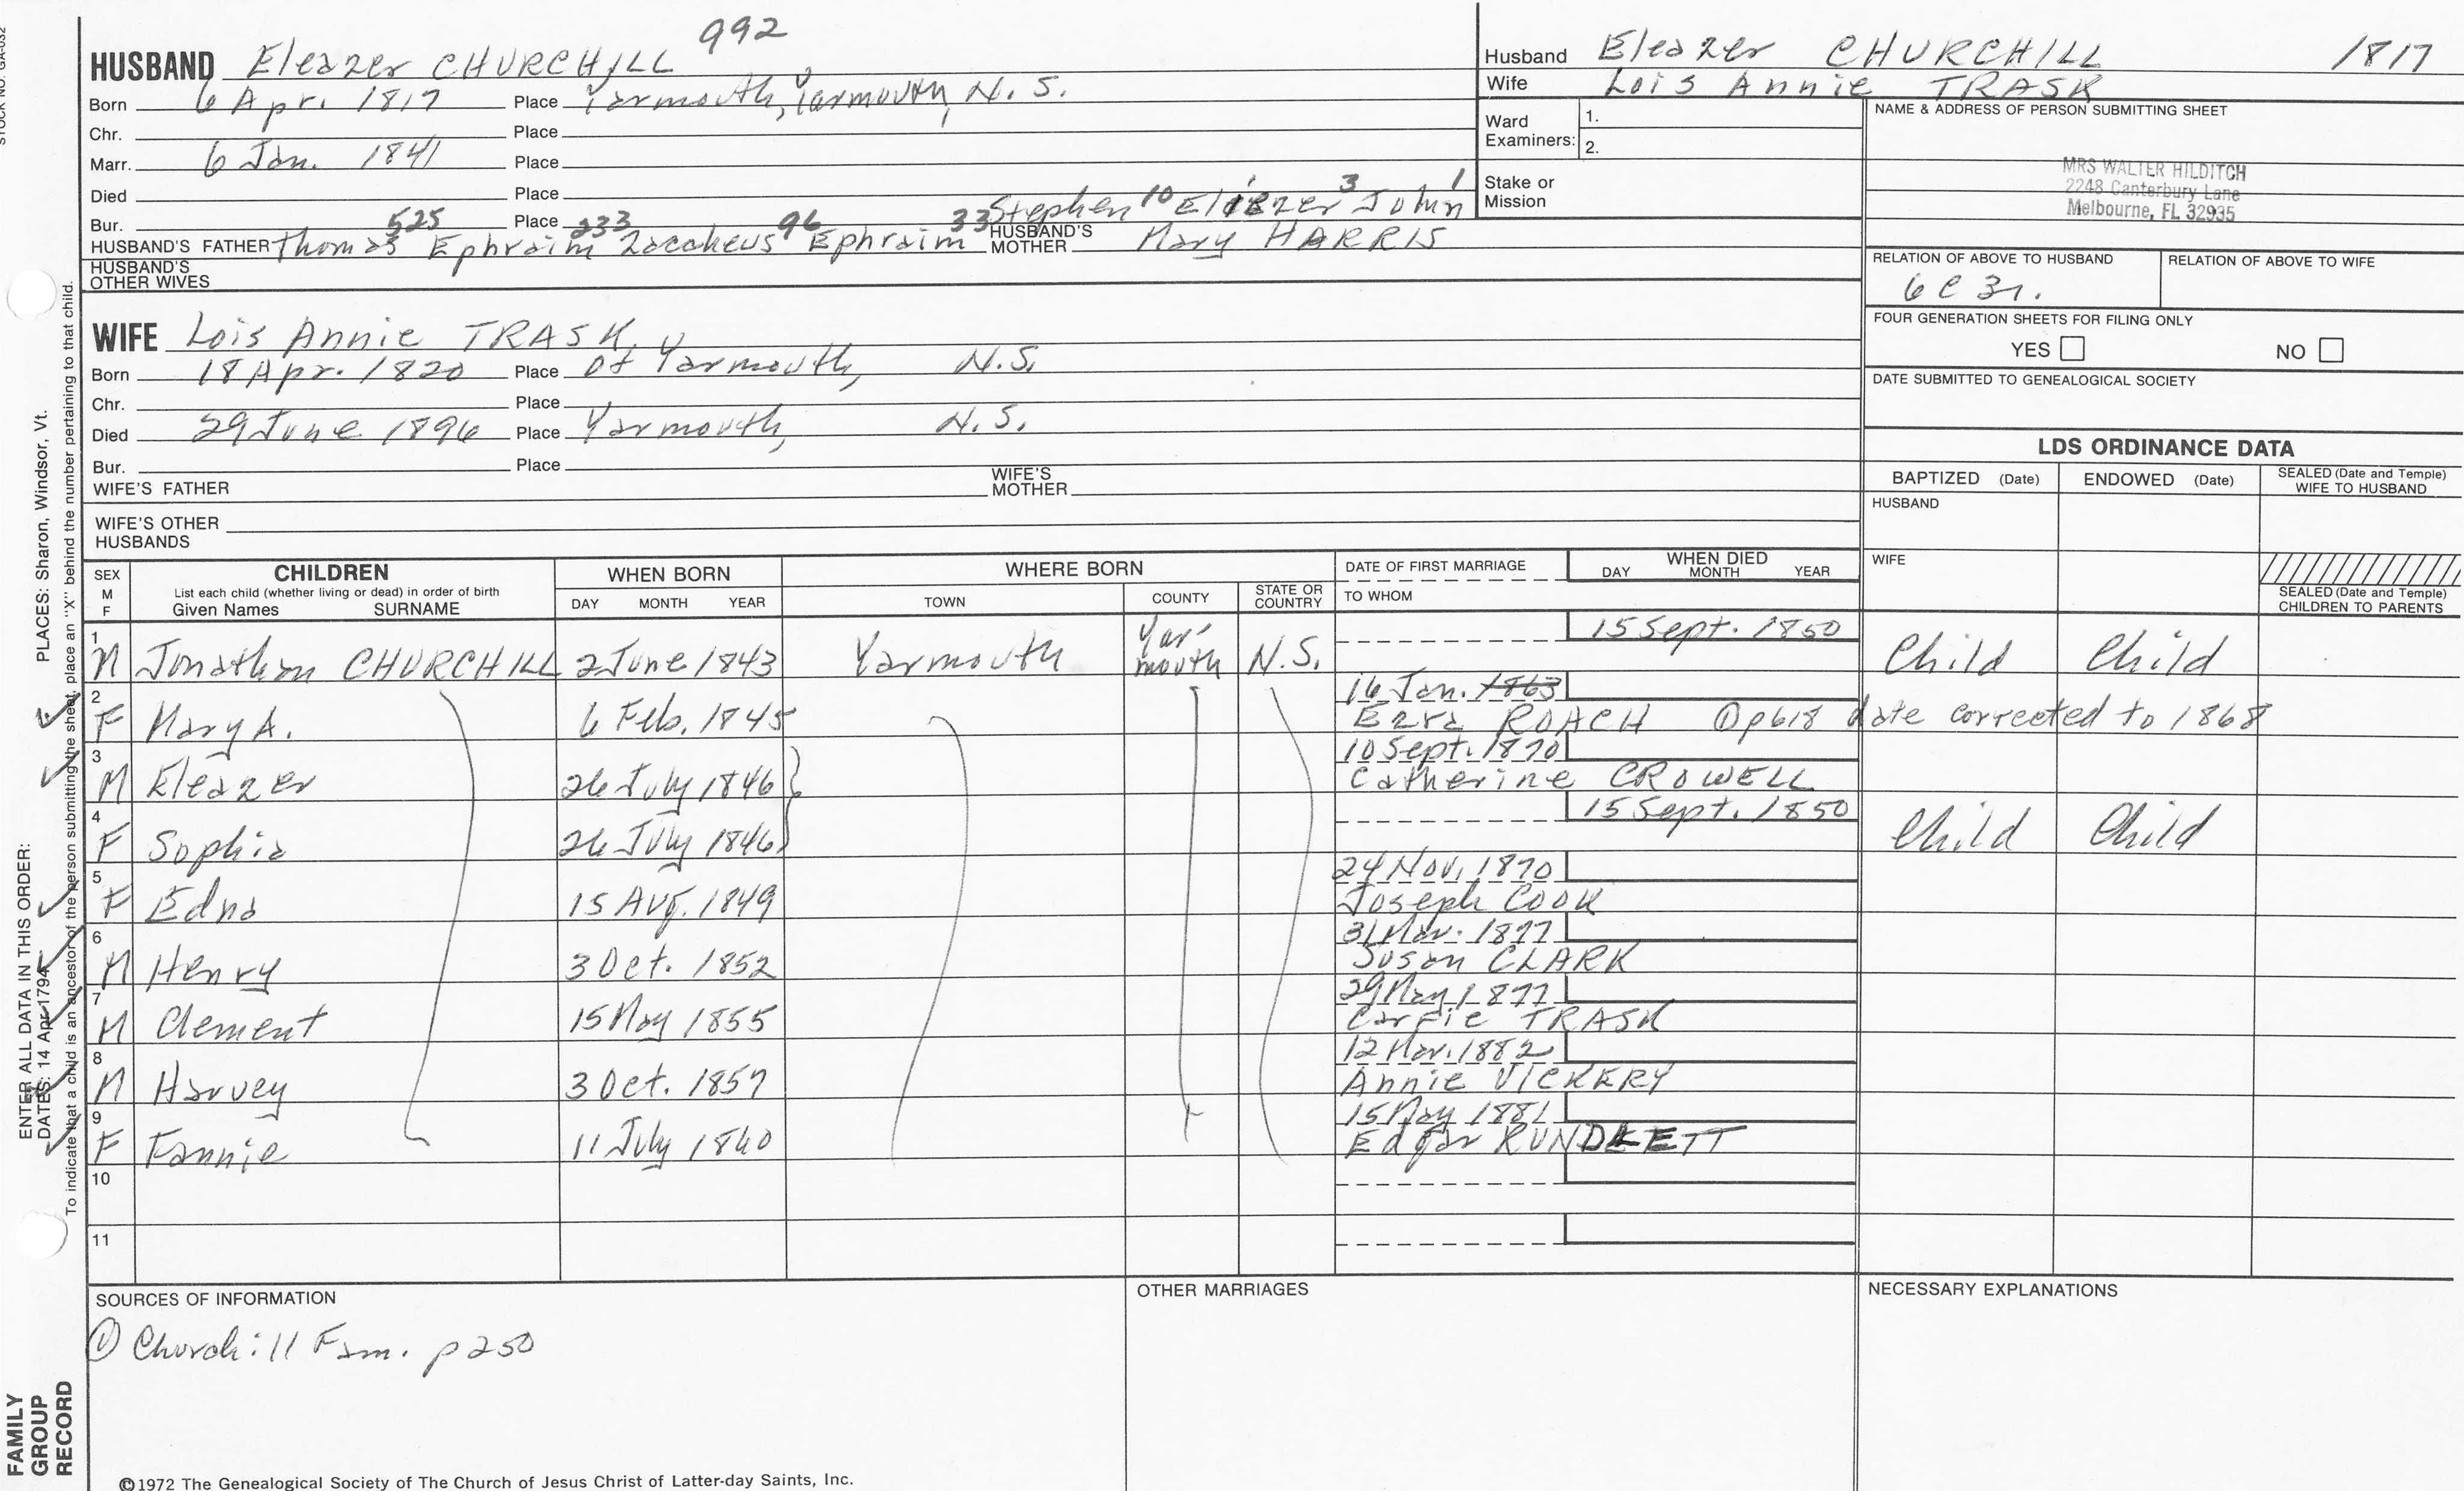 992
HUSBAND Eleazer CHURCHILL
Born 6 Apr. 1817 Place Yarmouth, Yarmouth, N. S.
Chr. Place
Marr. 6 Jan. 1841 Place
Died Place
Bur. Place
525 233 96 33 Stephen 10 Eliezer 3 John 1
HUSBAND'S FATHER Thomas Ephraim Zaccheus Ephraim HUSBAND'S MOTHER Mary HARRIS
HUSBAND'S OTHER WIVES
WIFE Lois Annie TRASK
Born 18 Apr. 1820 Place Of Yarmouth, N.S.
Chr. Place
Died 29 June 1896 Place Yarmouth, N.S.
Bur. Place
WIFE'S FATHER WIFE'S MOTHER
WIFE'S OTHER HUSBANDS
Husband Eleazer CHURCHILL 1817
Wife Lois Annie TRASK
Ward Examiners: 1.
2.
Stake or Mission
NAME & ADDRESS OF PERSON SUBMITTING SHEET
MRS WALTER HILDITCH
2248 Canterbury Lane
Melbourne, FL 32935
RELATION OF ABOVE TO HUSBAND RELATION OF ABOVE TO WIFE
6 C 3r.
FOUR GENERATION SHEETS FOR FILING ONLY
YES NO
DATE SUBMITTED TO GENEALOGICAL SOCIETY
LDS ORDINANCE DATA
BAPTIZED (Date) ENDOWED (Date) SEALED (Date and Temple) WIFE TO HUSBAND
HUSBAND
WIFE
SEALED (Date and Temple) CHILDREN TO PARENTS
SEX M F CHILDREN WHEN BORN WHERE BORN DATE OF FIRST MARRIAGE WHEN DIED
List each child (whether living or dead) in order of birth
Given Names SURNAME DAY MONTH YEAR TOWN COUNTY STATE OR COUNTRY TO WHOM DAY MONTH YEAR
1 M Jonathan CHURCHILL 2 June 1843 Yarmouth Yar-mouth N.S. 15 Sept. 1850 Child Child
2 F Mary A. 6 Feb. 1845 16 Jan. 1863
Ezra ROACH ① p618 date corrected to 1868
3 M Eleazer 26 July 1846 10 Sept. 1870
Catherine CROWELL
4 F Sophia 26 July 1846 15 Sept. 1850 Child Child
5 F Edna 15 Aug. 1849 24 Nov. 1870
Joseph COOK
6 M Henry 3 Oct. 1852 31 Mar. 1877
Susan CLARK
7 M Clement 15 May 1855 29 May 1877
Carrie TRASK
8 M Harvey 3 Oct. 1857 12 Mar. 1882
Annie VICKERY
9 F Fannie 11 July 1860 15 May 1881
Edgar RUNDLETT
10
11
SOURCES OF INFORMATION
① Churchill Fam. p250
OTHER MARRIAGES
NECESSARY EXPLANATIONS
©1972 The Genealogical Society of The Church of Jesus Christ of Latter-day Saints, Inc.
STOCK NO. GA-032
PLACES: Sharon, Windsor, Vt.
To indicate that a child is an ancestor of the person submitting the sheet, place an "X" behind the number pertaining to that child.
ENTER ALL DATA IN THIS ORDER:
DATES: 14 Apr 1794
FAMILY GROUP RECORD